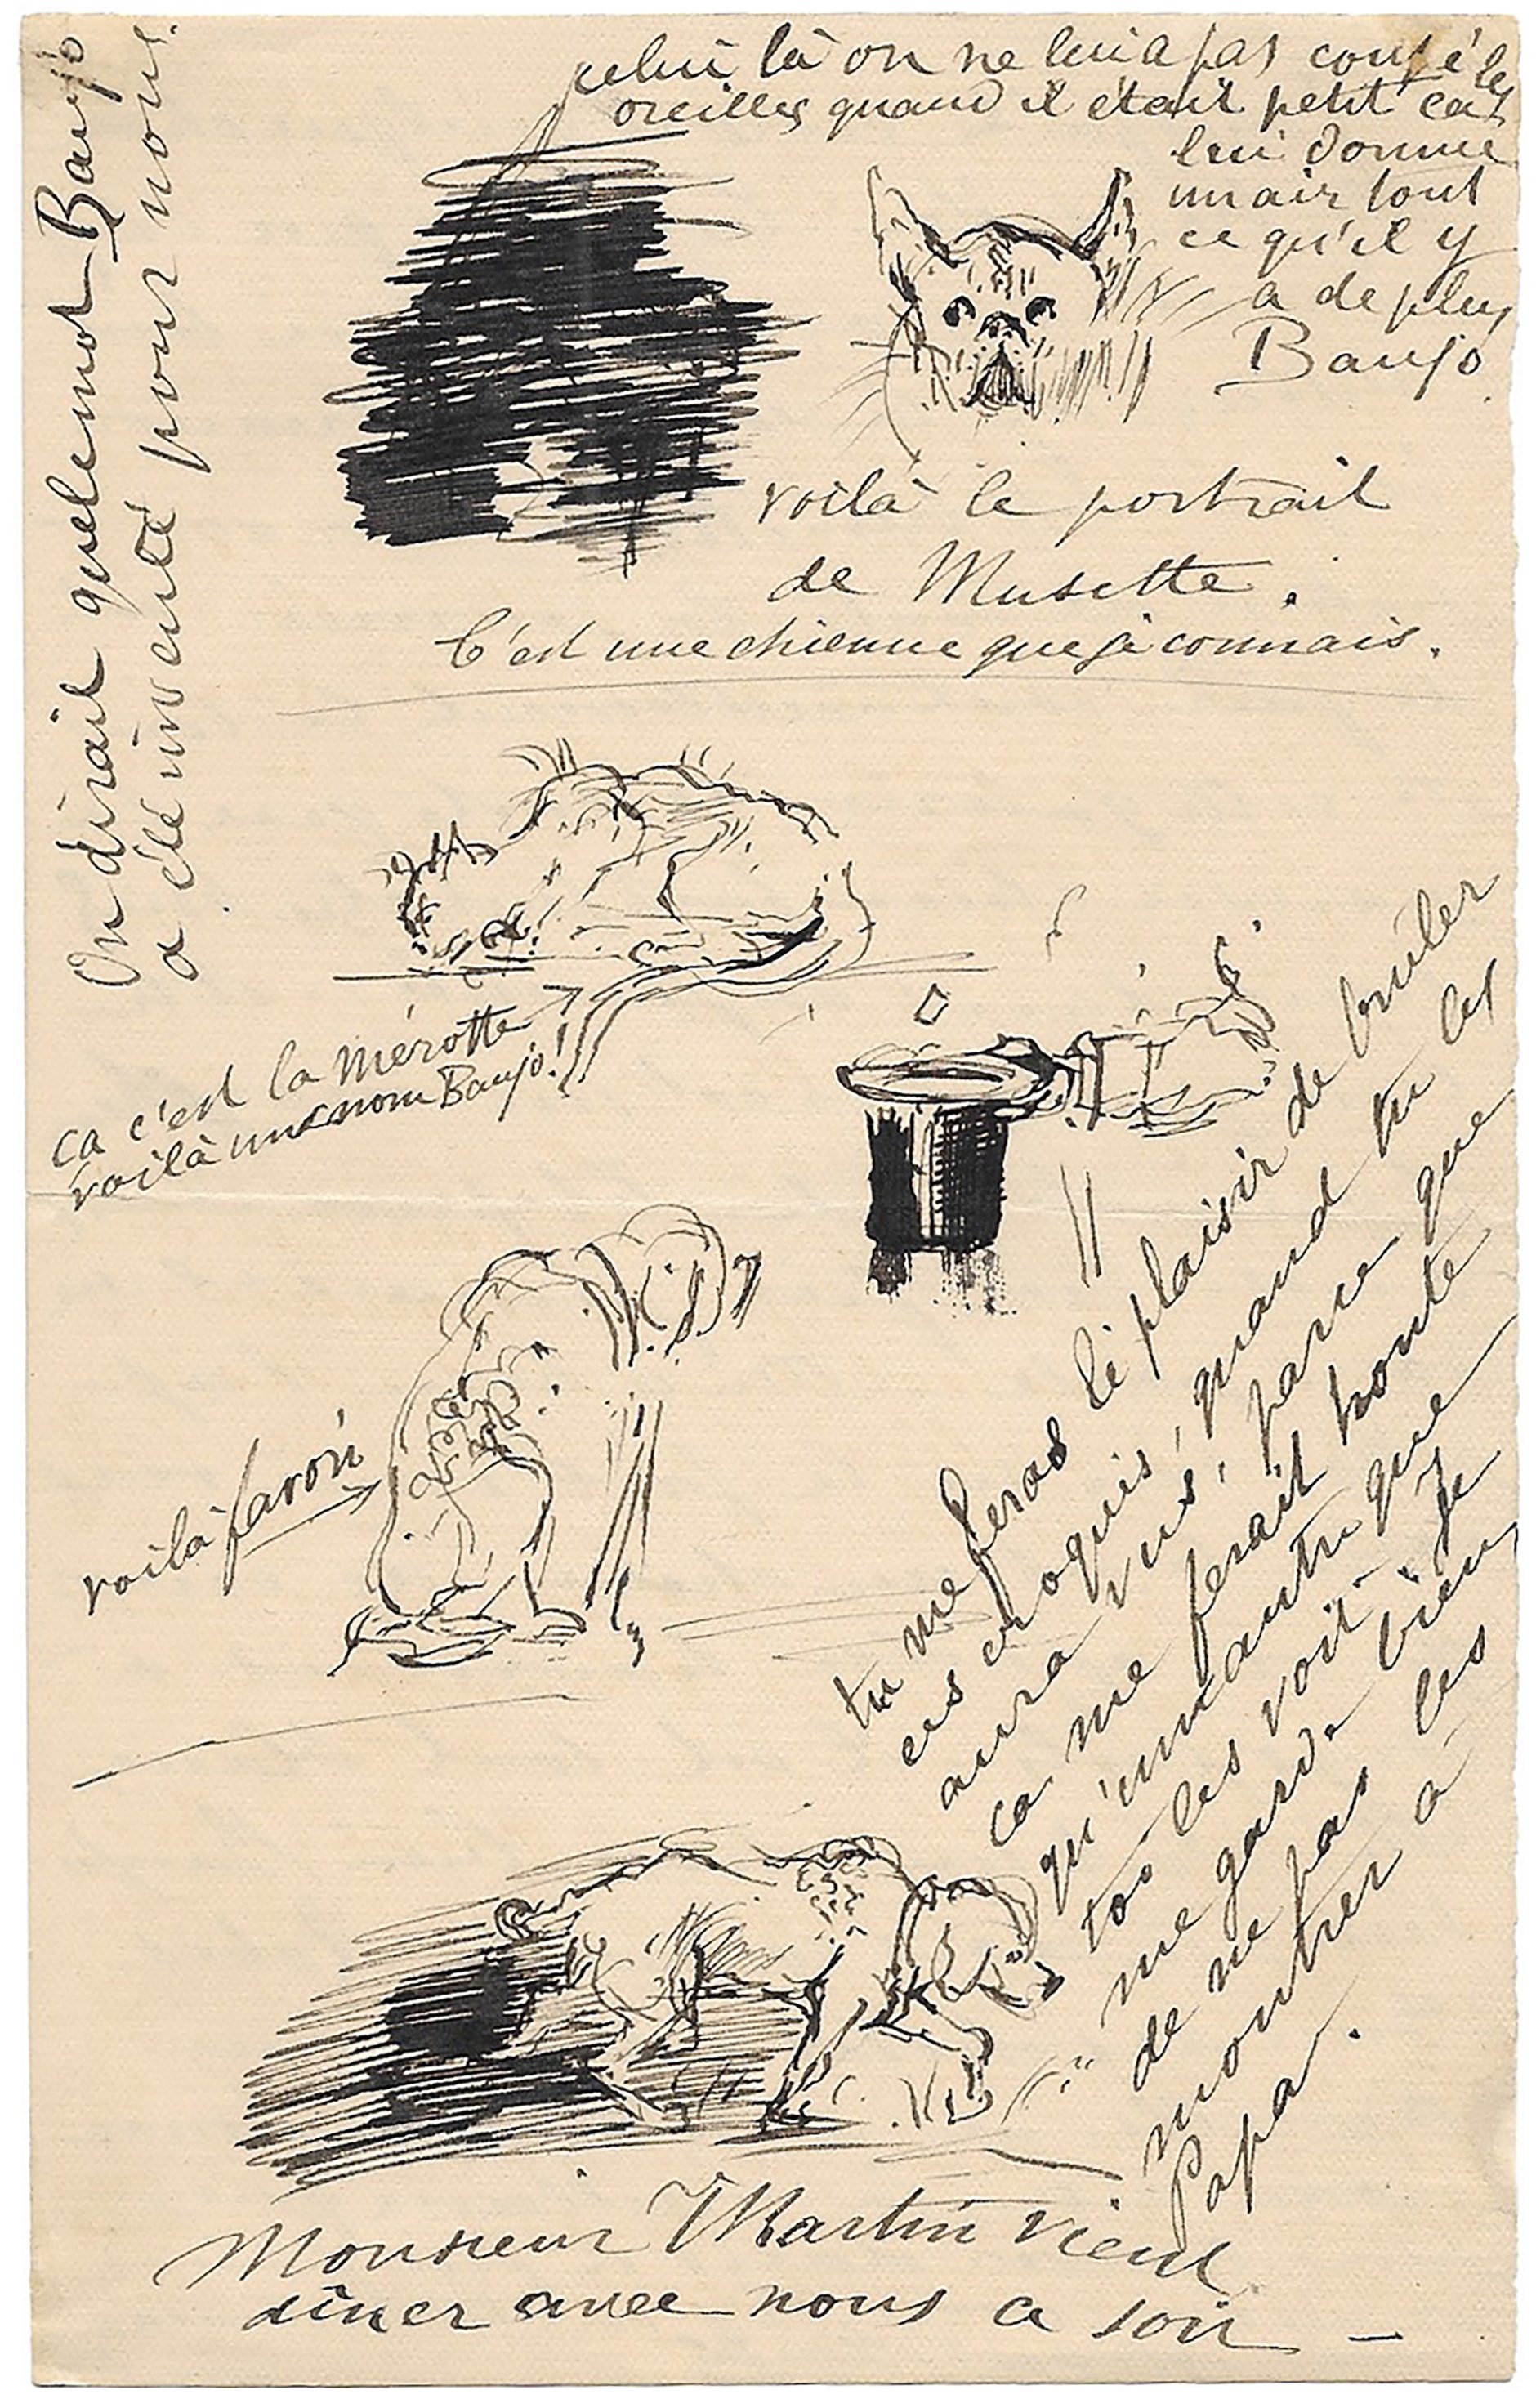 celui là on ne lui a pas coupé les
oreilles quand il était petit ça
lui donne
un air tout
ce qu'il y
a de plus
Banjo
On dirait que le mot Banjo
a été inventé pour nous.
voilà le portrait
de Musette.
C'est une chienne que je connais.
ça c'est la mérotte
voilà un nom Banjo!
voilà favori
tu me feras le plaisir de brûler
ces croquis, quand tu les
aura vus, parce que
ça me ferait honte
qu'un autre que
toi les voit. Je
me garde bien
de ne pas les
montrer à
Papa.
Monsieur Martin vient
dîner avec nous ce soir —